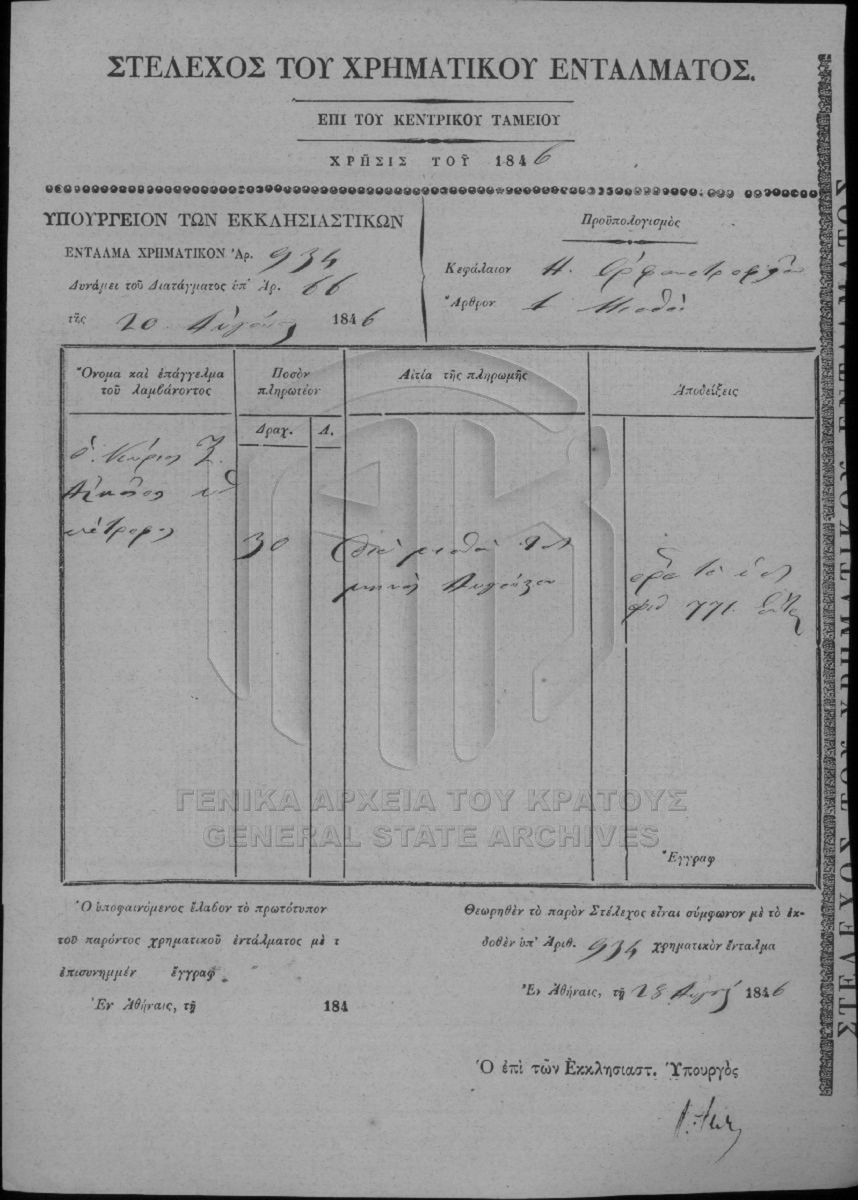 ΣΤΕΛΕΧΟΣ ΤΟΥ ΧΡΗΜΑΤΙΚΟΥ ΕΝΤΑΛΜΑΤΟΣ.
ΕΠΙ ΤΟΥ ΚΕΝΤΡΙΚΟΥ ΤΑΜΕΙΟΥ
ΧΡΗΣΙΣ ΤΟΥ 1846
ΥΠΟΥΡΓΕΙΟΝ ΤΩΝ ΕΚΚΛΗΣΙΑΣΤΙΚΩΝ
ΕΝΤΑΛΜΑ ΧΡΗΜΑΤΙΚΟΝ Ἀρ. 934
Δυνάμει τοῦ Διατάγματος ὑπ' Ἀρ. 66
τῆς 20 Αὐγούστ 1846
Προϋπολογισμὸς
Κεφάλαιον Η. Ὀρφανοτροφεῖον
Ἄρθρον 1 Μισθοὶ
Ὄνομα καὶ ἐπάγγελμα
τοῦ λαμβάνοντος
Ποσὸν
πληρωτέον
Αἰτία τῆς πληρωμῆς
Ἀποδείξεις
Δραχ. Λ.
ὁ Κύριος
30
διὰ μισθὸν τοῦ
μηνὸς Αὐγούστου
771
Ἔγγραφ
Ὁ ὑποφαινόμενος ἔλαβον τὸ πρωτότυπον
τοῦ παρόντος χρηματικοῦ ἐντάλματος μὲ τ
ἐπισυνημμέν ἔγγραφ
Ἐν Ἀθήναις, τῇ 184
Θεωρηθὲν τὸ παρὸν Στέλεχος εἶναι σύμφωνον μὲ τὸ ἐκ-
δοθὲν ὑπ' Ἀριθ. 934 χρηματικὸν ἔνταλμα
Ἐν Ἀθήναις, τῇ 28 Αὐγού 1846
Ὁ ἐπὶ τῶν Ἐκκλησιαστ. Ὑπουργὸς
ΣΤΕΛΕΧΟΣ ΤΟΥ ΧΡΗΜΑΤΙΚΟΥ ΕΝΤΑΛΜΑΤΟΣ
ΓΕΝΙΚΑ ΑΡΧΕΙΑ ΤΟΥ ΚΡΑΤΟΥΣ
GENERAL STATE ARCHIVES